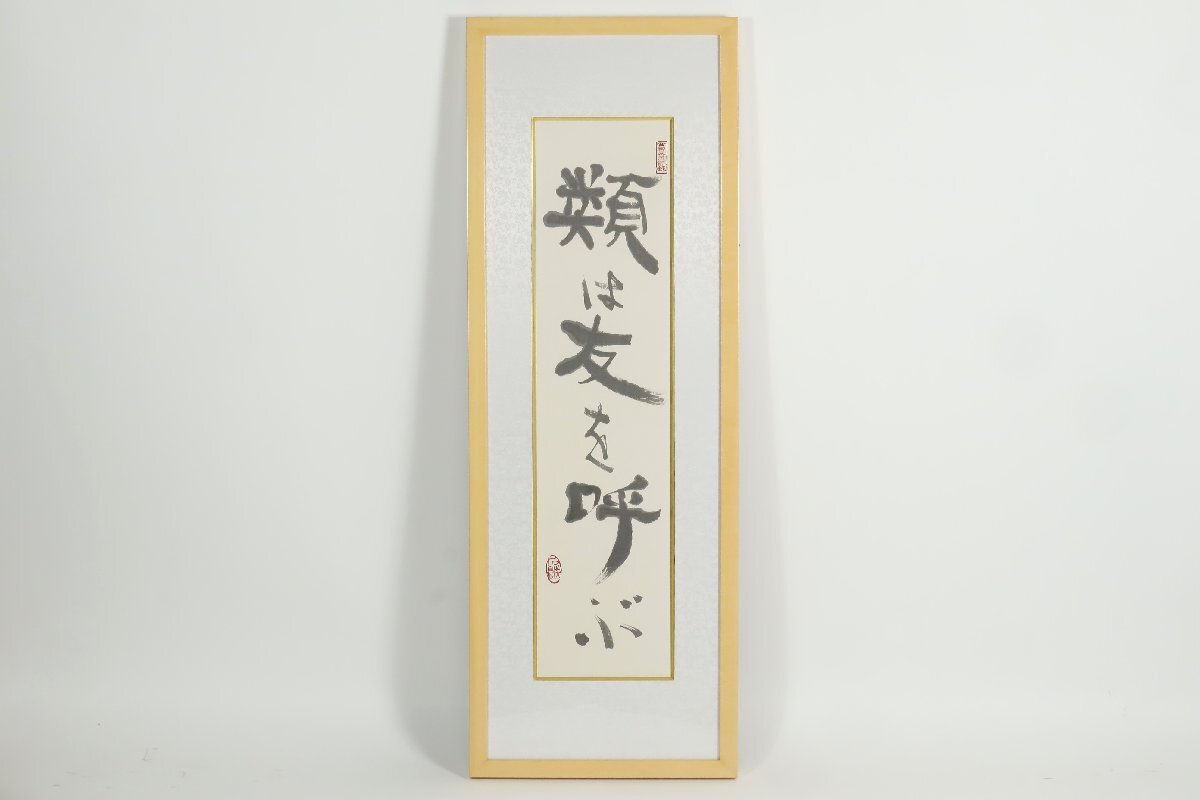 類は友を呼ぶ